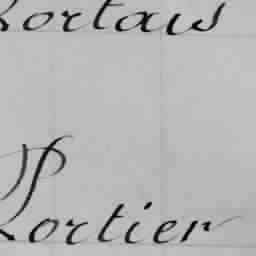 Portais
Portier